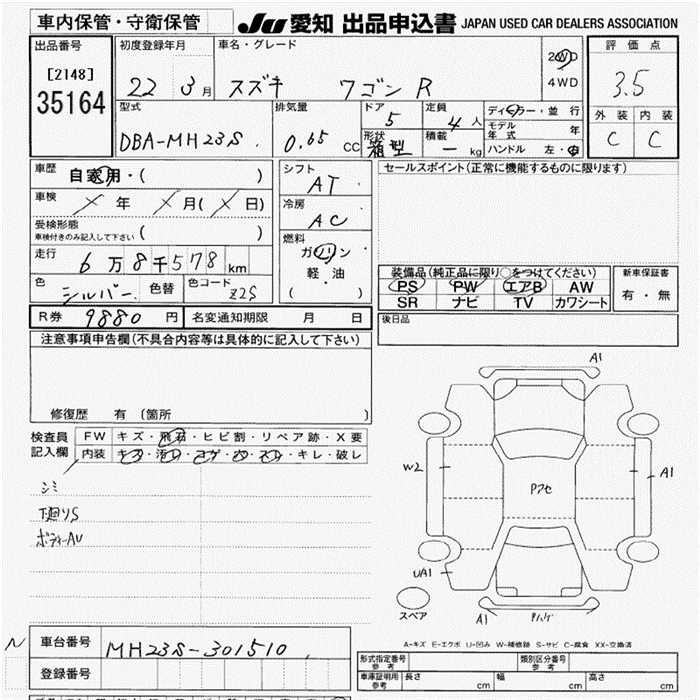 車内保管・守衛保管
JU 愛知 出品申込書 JAPAN USED CAR DEALERS ASSOCIATION
出品番号
[2148]
35164
初度登録年月
22 3 月
車名・グレード
スズキ ワゴンR
2WD
4WD
評価点
3.5
外装 内装
C C
型式
DBA-MH23S
排気量
0.65 CC
ドア
5
定員
4 人
形状
箱型
積載
ー kg
ディーラー・並行
モデル年式 年
ハンドル 左・右
車歴
自家用・( )
車検
年 月( 日)
受検形態
車検付きのみ記入して下さい ( )
走行
6万8千578 km
シフト
AT
冷房
AC
燃料
ガソリン
軽・油
( )
色
シルバー
色替
色コード
Z2S
R券 9880 円
名変通知期限 月 日
セールスポイント(正常に機能するものに限ります)
装備品(純正品に限り○をつけてください)
PS PW エアB AW
SR ナビ TV カワシート
新車保証書
有・無
後日品
注意事項申告欄(不具合内容等は具体的に記入して下さい)
修復歴 有 〔箇所 〕
検査員記入欄
FW キズ・飛石・ヒビ割・リペア跡・X要
内装 キズ・汚レ・コゲ・穴・スレ・キレ・破レ
シミ
下廻りS
ボディーAU
A1
W2
Pアセ
A1
UA1
スペア
A1
A-キズ E-エクボ U-凹み W-補修跡 S-サビ C-腐食 XX-交換済
N
車台番号 MH23S-301510
登録番号
形式指定番号
参考
類別区分番号
参考
車庫証明用
参考
長さ cm 幅 cm 高さ cm